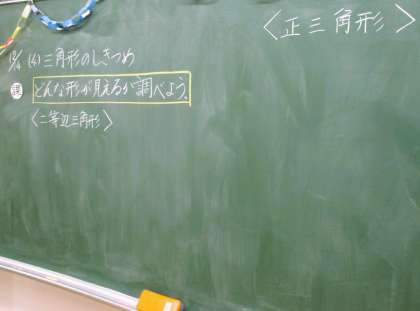 (4)三角形のしきつめ
課 どんな形が見えるか調べよう。
〈二等辺三角形〉
〈正三角形〉